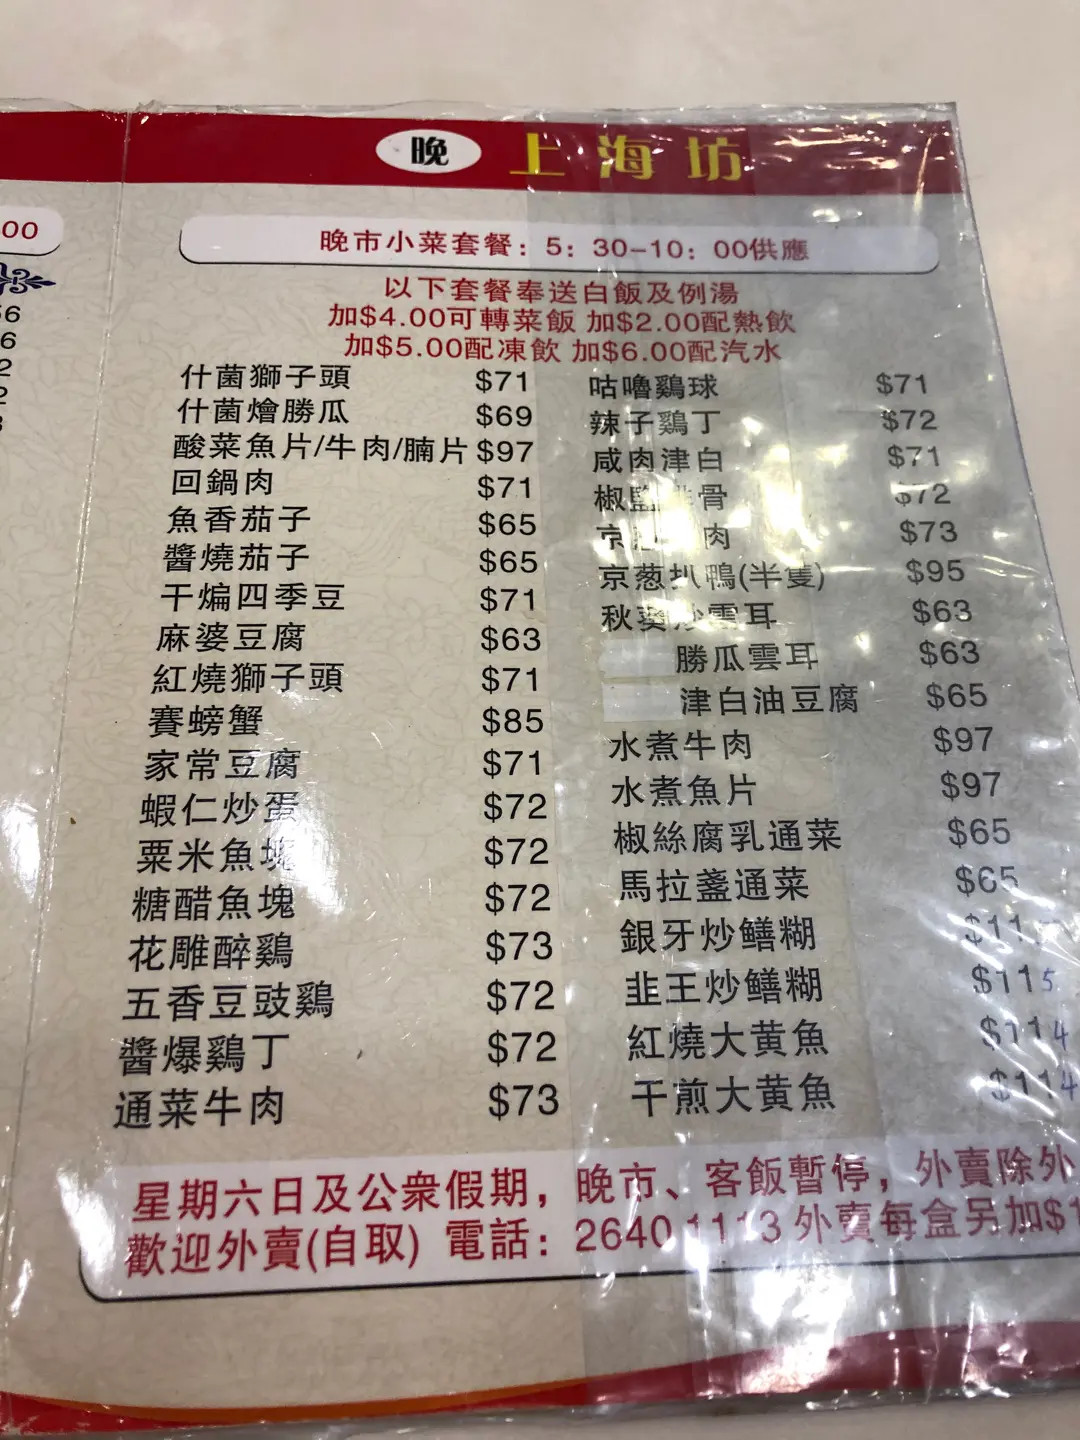 00
56
6
2
2
3
晚 上海坊
晚市小菜套餐：5：30-10：00供應
以下套餐奉送白飯及例湯
加$4.00可轉菜飯 加$2.00配熱飲
加$5.00配凍飲 加$6.00配汽水
什菌獅子頭 $71
什菌燴勝瓜 $69
酸菜魚片/牛肉/腩片 $97
回鍋肉 $71
魚香茄子 $65
醬燒茄子 $65
干煸四季豆 $71
麻婆豆腐 $63
紅燒獅子頭 $71
賽螃蟹 $85
家常豆腐 $71
蝦仁炒蛋 $72
粟米魚塊 $72
糖醋魚塊 $72
花雕醉鷄 $73
五香豆豉鷄 $72
醬爆鷄丁 $72
通菜牛肉 $73
咕嚕鷄球 $71
辣子鷄丁 $72
咸肉津白 $71
椒盬 骨 $72
京 肉 $73
京葱扒鴨(半隻) $95
秋葵炒雲耳 $63
勝瓜雲耳 $63
津白油豆腐 $65
水煮牛肉 $97
水煮魚片 $97
椒絲腐乳通菜 $65
馬拉盞通菜 $65
銀牙炒鱔糊
韭王炒鱔糊 $115
紅燒大黄魚 $114
干煎大黄魚 $114
星期六日及公衆假期，晚市、客飯暫停，外賣除外
歡迎外賣(自取) 電話：2640 1113 外賣每盒另加$1